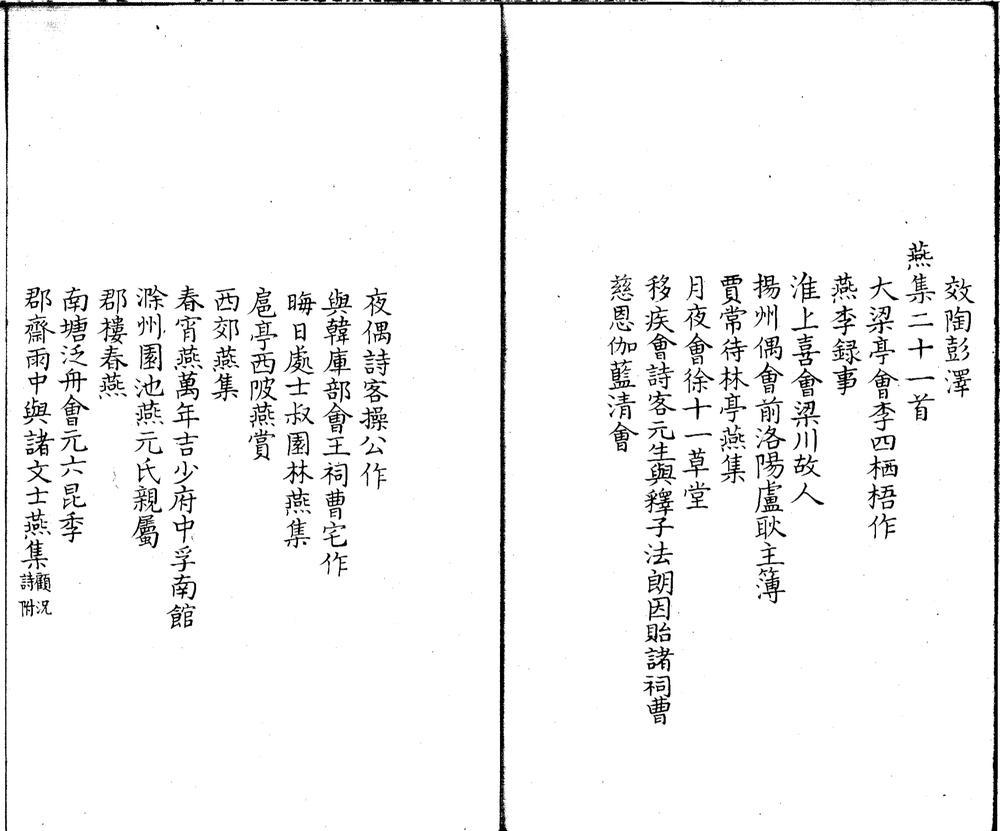 效陶彭澤
燕集二十一首
大梁亭會李四栖梧作
燕李録事
淮上喜會梁川故人
揚州偶會前洛陽盧耿主簿
賈常待林亭燕集
月夜會徐十一草堂
移疾會詩客元生與釋子法朗因貽諸祠曹
慈恩伽藍清會
夜偶詩客操公作
與韓庫部會王祠曹宅作
晦日處士叔園林燕集
扈亭西陂燕賞
西郊燕集
春宵燕萬年吉少府中孚南館
滁州園池燕元氏親屬
郡樓春燕
南塘泛舟會元六昆季
郡齋雨中與諸文士燕集顧況詩附